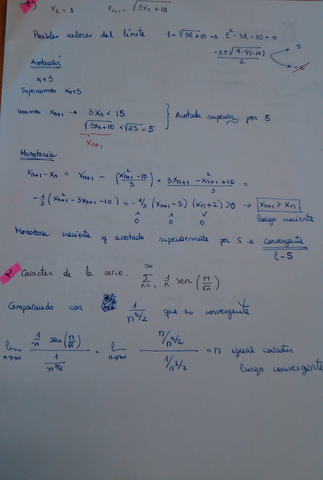 x₁ = 3   xₙ₊₁ = √(3xₙ + 10)
Posibles valores del límite   l = √(3l + 10) → l² - 3l - 10 = 0
5
Acotación
x₁ < 5
Suponemos xₙ < 5
Veamos xₙ₊₁ → 3xₙ < 15
√(3xₙ + 10) < √25 = 5   } Acotada superior/ por 5
xₙ₊₁
Monotonía
xₙ₊₁ - xₙ = xₙ₊₁ - (x²ₙ₊₁ - 10)/3 = (3xₙ₊₁ - x²ₙ₊₁ + 10)/3 =
-1/3 (x²ₙ₊₁ - 3xₙ₊₁ - 10) = -1/3 (xₙ₊₁ - 5) (xₙ₊₁ + 2) > 0 → xₙ₊₁ > xₙ
luego creciente
Monótona creciente y acotada superiormente por 5 → convergente
l = 5
2 Carácter de la serie. ∑ₙ₌₁^∞ 1/n sen (π/√n)
Comparando con 1/n^3/2 que es convergente
lim n→∞ (1/n sen(π/√n))/(1/n^3/2) = lim n→∞ (π/n^3/2)/(1/n^3/2) = π igual carácter
luego convergente